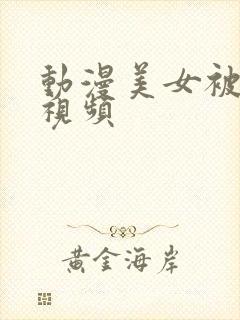 動漫美女被
視頻
黃金海岸